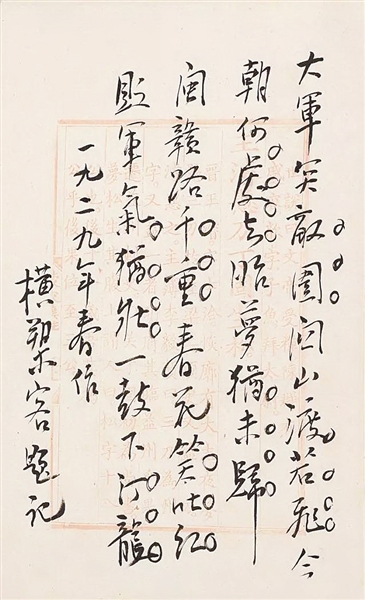 大軍突敵圍関山渡若飛今
朝何處去昨夢猶未歸
閩贛路千重春花笑吐紅
敗軍氣猶壯一鼓下汀龍
一九二九年春作
橫槊客題記